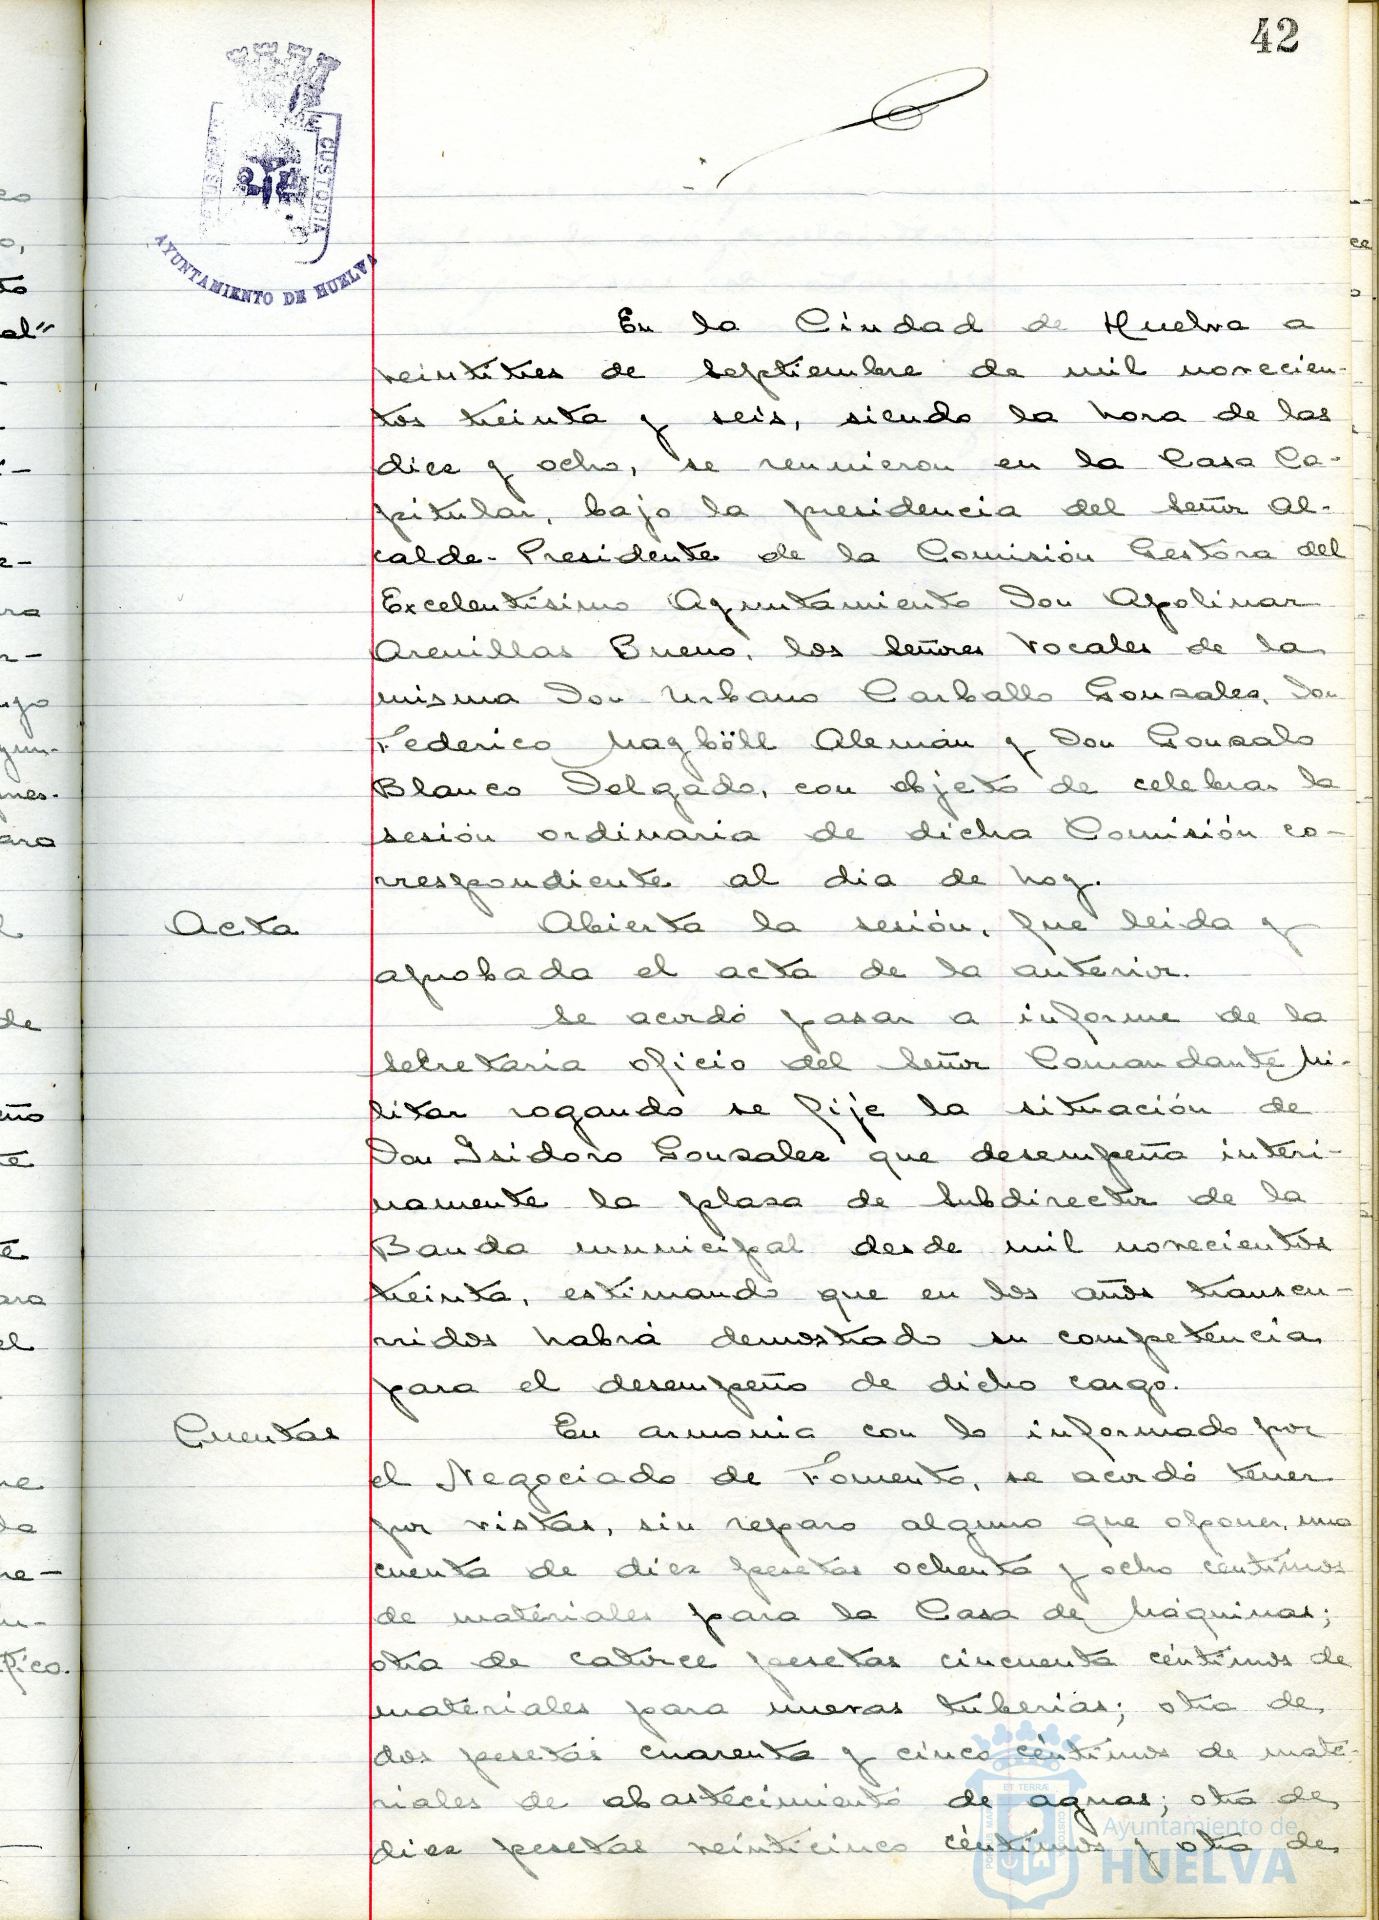 42
CUSTODIA
AYUNTAMIENTO DE HUELVA
En la Ciudad de Huelva a
veintitres de septiembre de mil novecien-
tos treinta y seis, siendo la hora de las
diez y ocho, se reunieron en la Casa Ca-
pitular, bajo la presidencia del Señor Al-
calde-Presidente de la Comisión Gestora del
Excelentísimo Ayuntamiento Don Apolinar
Arenillas Bueno, los Señores Vocales de la
misma Don Urbano Carballo Gonzalez, Don
Federico Magböll Alemán y Don Gonzalo
Blanco Delgado, con objeto de celebrar la
sesión ordinaria de dicha Comisión co-
rrespondiente al dia de hoy.
Acta
Abierta la sesión, fue leida y
aprobada el acta de la anterior.
Se acordó pasar a informe de la
Secretaria oficio del Señor Comandante Mi-
litar rogando se fije la situación de
Don Isidoro Gonzalez que desempeña interi-
namente la plaza de Subdirector de la
Banda municipal desde mil novecientos
treinta, estimando que en los años transcu-
rridos habrá demostrado su competencia
para el desempeño de dicho cargo.
Cuentas
En armonia con lo informado por
el Negociado de Fomento, se acordó tener
por vistas, sin reparo alguno que oponer, una
cuenta de diez pesetas ochenta y ocho céntimos
de materiales para la Casa de Máquinas;
otra de catorce pesetas cincuenta céntimos de
materiales para nuevas tuberias; otra de
dos pesetas cuarenta y cinco céntimos de mate-
riales de abastecimiento de aguas; otra de
diez pesetas veinticinco céntimos y otra de
Ayuntamiento de
HUELVA